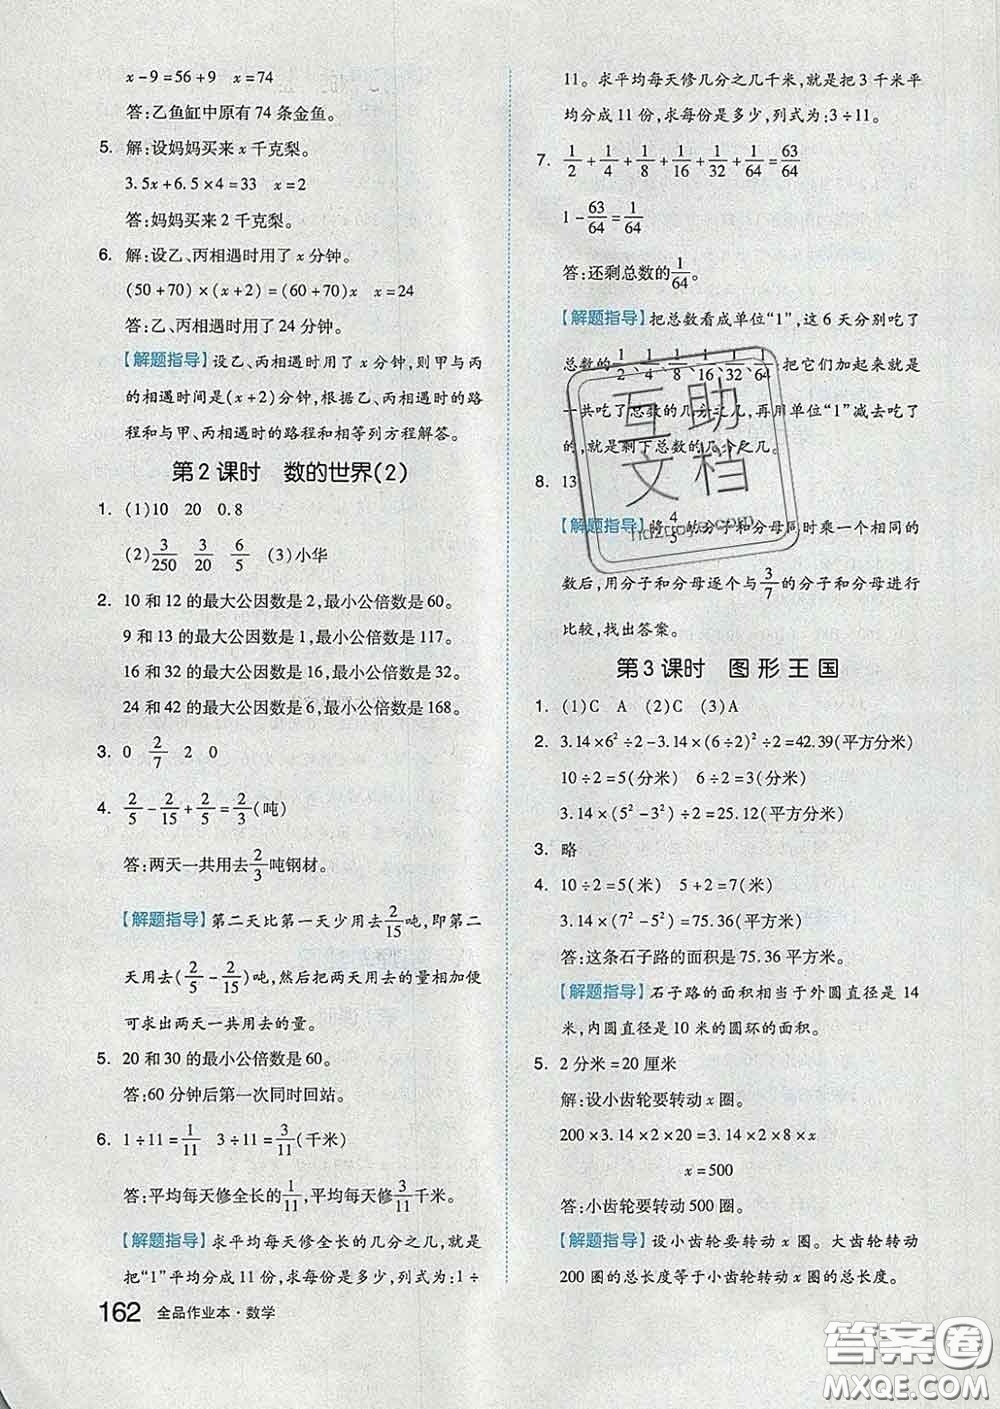 x-9=56+9 x=74
答:乙鱼缸中原有74条金鱼。
5. 解:设妈妈买来x千克梨。
3.5x+6.5×4=33 x=2
答:妈妈买来2千克梨。
6. 解:设乙、丙相遇时用了x分钟。
(50+70)×(x+2)=(60+70)x x=24
答:乙、丙相遇时用了24分钟。
【解题指导】设乙、丙相遇时用了x分钟,则甲与丙
的相遇时间是(x+2)分钟,根据乙、丙相遇时的路
程和与甲、丙相遇时的路程和相等列方程解答。
第2课时 数的世界(2)
1. (1)10 20 0.8
(2)3/250 3/20 6/5 (3)小华
2. 10和12的最大公因数是2,最小公倍数是60。
9和13的最大公因数是1,最小公倍数是117。
16和32的最大公因数是16,最小公倍数是32。
24和42的最大公因数是6,最小公倍数是168。
3. 0 2/7 2 0
4. 2/5-2/15+2/5=2/3(吨)
答:两天一共用去2/3吨钢材。
【解题指导】第二天比第一天少用去2/15吨,即第二
天用去(2/5-2/15)吨,然后把两天用去的量相加便
可求出两天一共用去的量。
5. 20和30的最小公倍数是60。
答:60分钟后第一次同时回站。
6. 1÷11=1/11 3÷11=3/11(千米)
答:平均每天修全长的1/11,平均每天修3/11千米。
【解题指导】求平均每天修全长的几分之几,就是
把“1”平均分成11份,求每份是多少,列式为:1÷
162 全品作业本·数学
11。求平均每天修几分之几千米,就是把3千米平
均分成11份,求每份是多少,列式为:3÷11。
7. 1/2+1/4+1/8+1/16+1/32+1/64=63/64
1-63/64=1/64
答:还剩总数的1/64。
【解题指导】把总数看成单位“1”,这6天分别吃了
总数的1/2、1/4、1/8、1/16、1/32、1/64,把它们加起来就是
一共吃了总数的几分之几,再用单位“1”减去吃了
的,就是剩下总数的几分之几。
8. 13
【解题指导】将4/5的分子和分母同时乘一个相同的
数后,用分子和分母逐个与3/7的分子和分母进行
比较,找出答案。
第3课时 图形王国
1. (1)C A (2)C (3)A
2. 3.14×6²÷2-3.14×(6÷2)²÷2=42.39(平方分米)
10÷2=5(分米) 6÷2=3(分米)
3.14×(5²-3²)÷2=25.12(平方分米)
3. 略
4. 10÷2=5(米) 5+2=7(米)
3.14×(7²-5²)=75.36(平方米)
答:这条石子路的面积是75.36平方米。
【解题指导】石子路的面积相当于外圆直径是14
米,内圆直径是10米的圆环的面积。
5. 2分米=20厘米
解:设小齿轮要转动x圈。
200×3.14×2×20=3.14×8×2×x
x=500
答:小齿轮要转动500圈。
【解题指导】设小齿轮要转动x圈。大齿轮转动
200圈的总长度等于小齿轮转动x圈的总长度。
互助
文档
答案圈
MXQE.COM